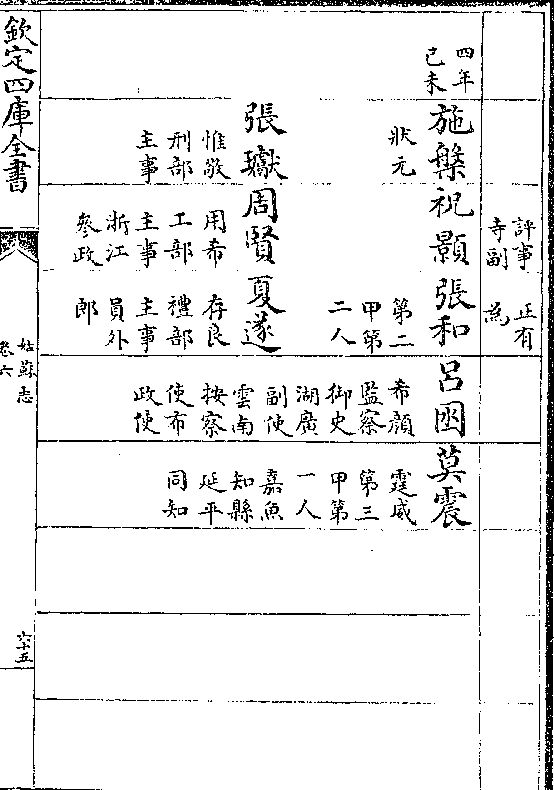 評事
寺副
正有
為
四年
己未
施槃
狀元
祝顥
張和
第二
甲第
二人
呂囦
希顔
監察
御史
湖廣
副使
雲南
按察
使布
政使
莫震
霆威
第三
甲第
一人
嘉魚
知縣
延平
同知
張瓛
惟敬
刑部
主事
周賢
用希
工部
主事
浙江
參政
夏遂
存良
禮部
主事
員外
郎
欽定四庫全書
姑蘇志
卷六
六十五